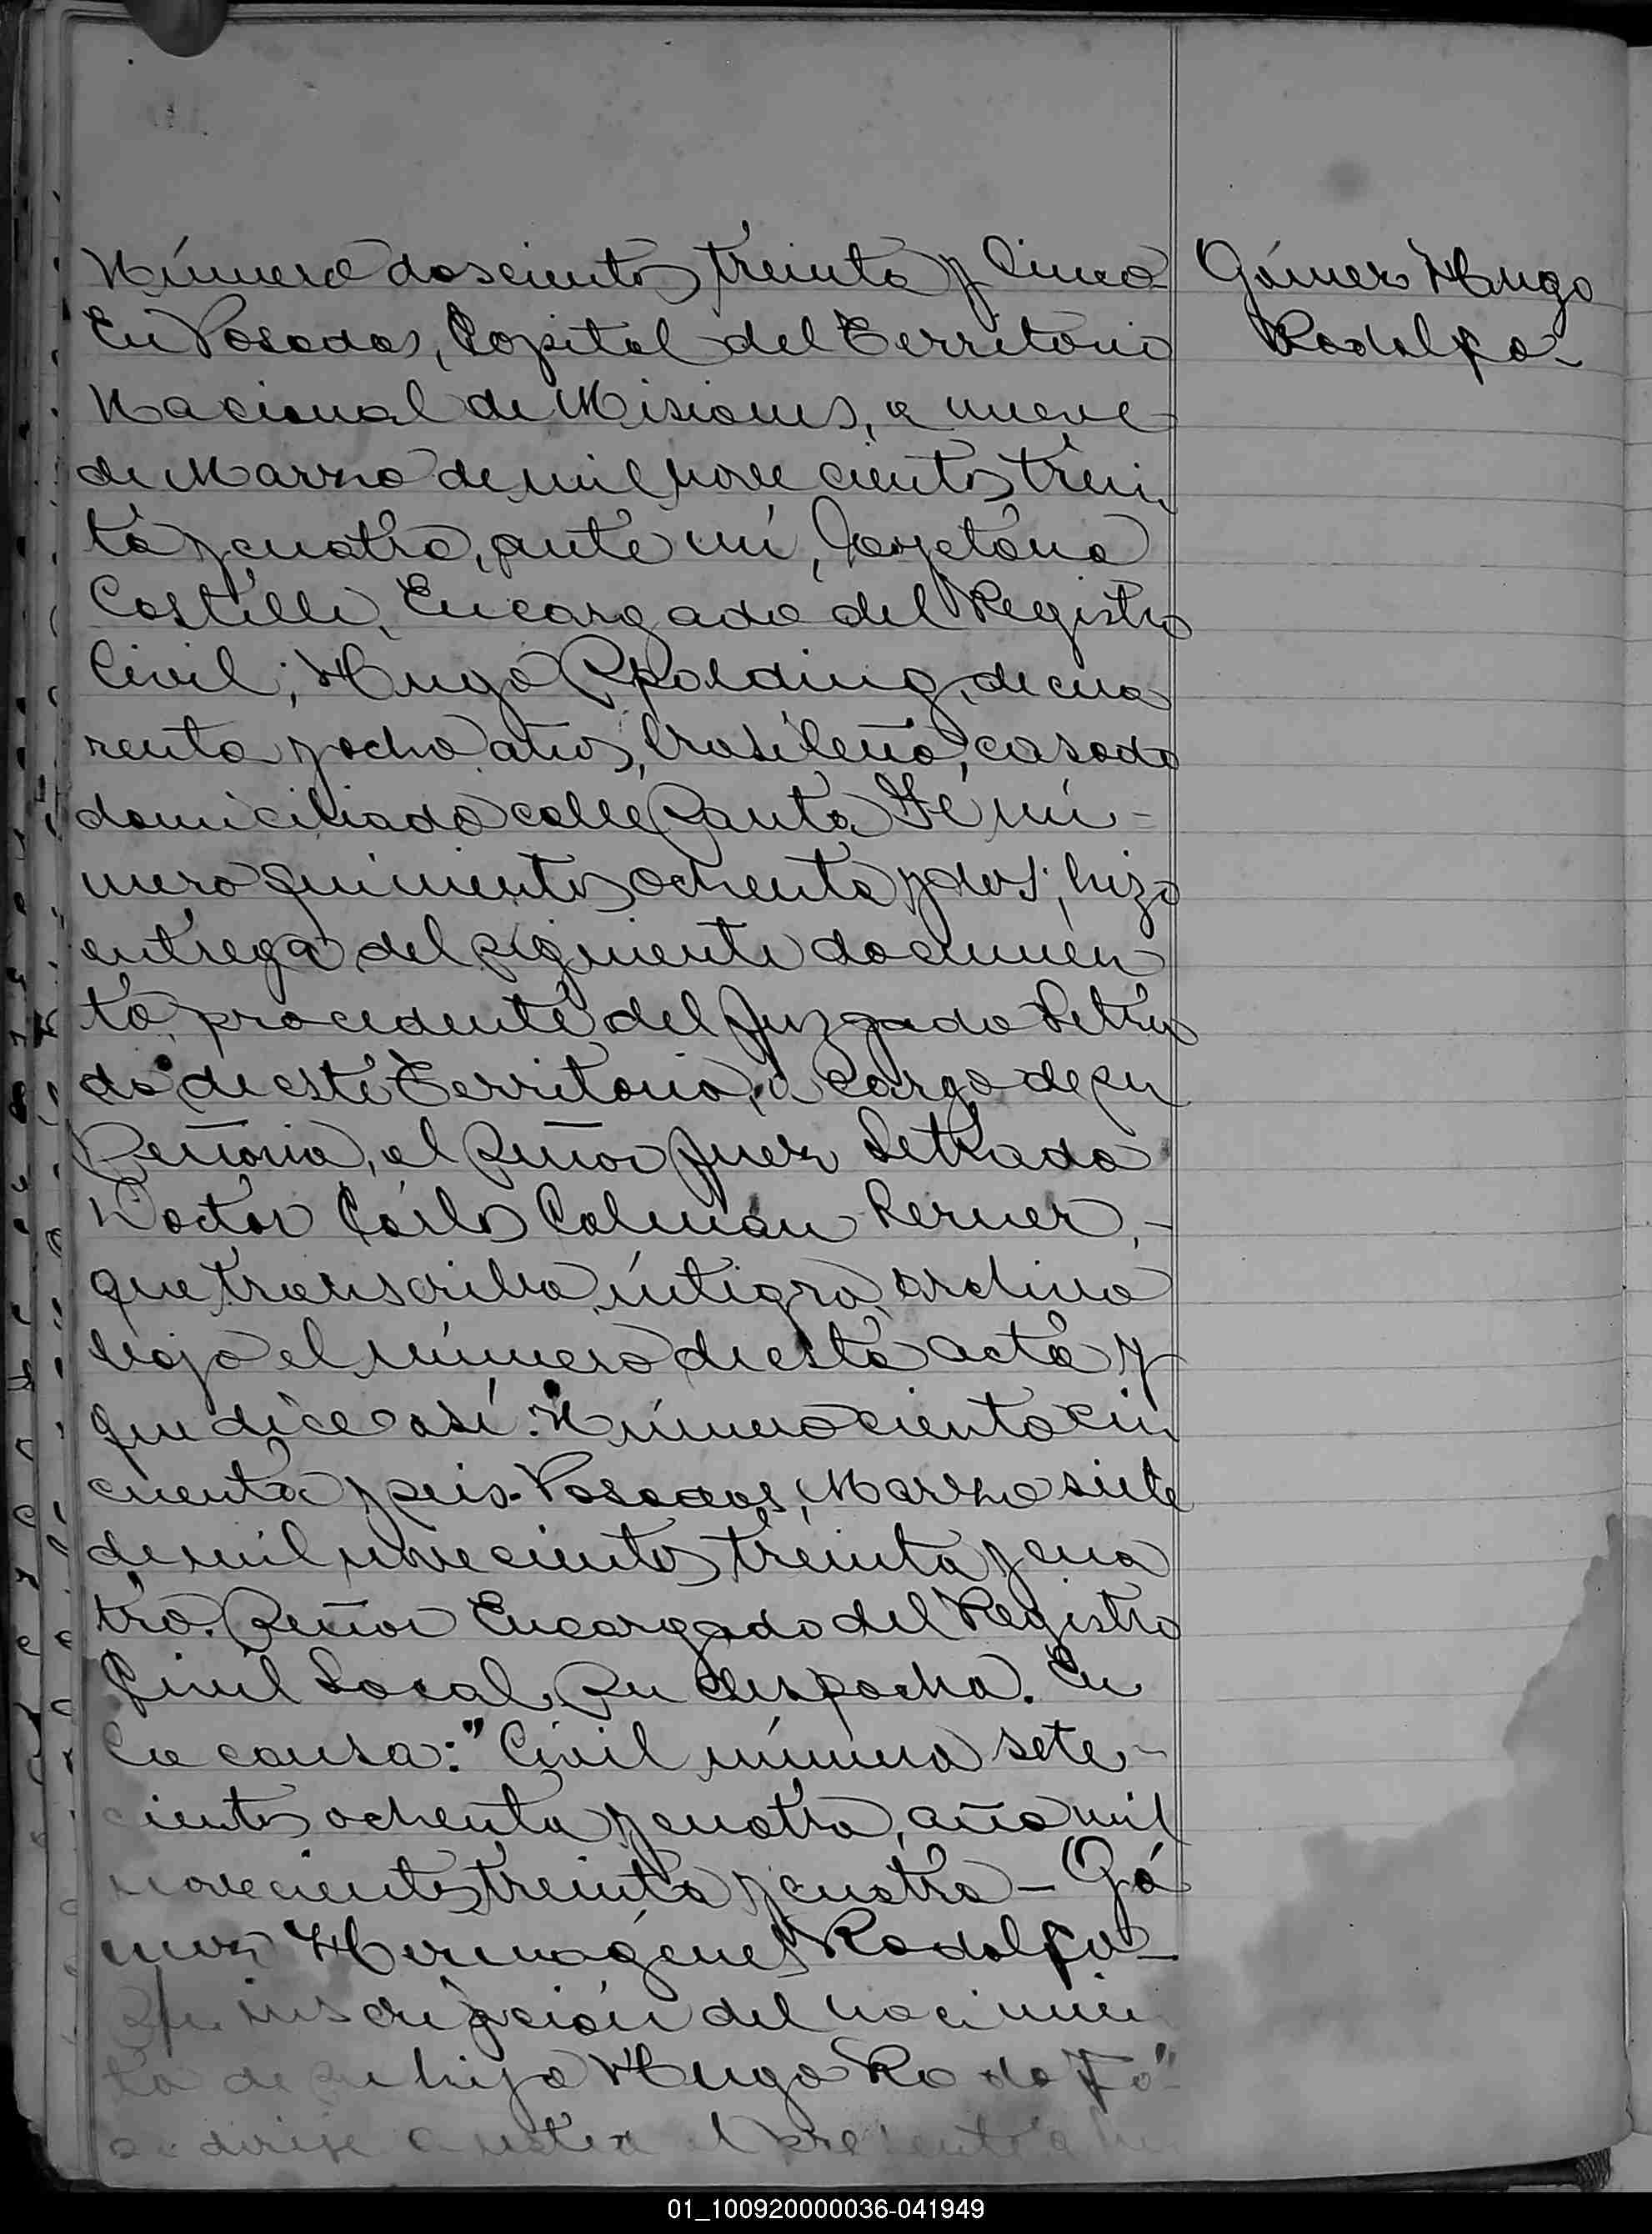 Número doscientos treinta y cinco
En Posadas, Capital del Territorio
Nacional de Misiones, a nueve
de Marzo de mil novecientos trein
ta y cuatro, ante mí, Cayetano
Castelli, Encargado del Registro
Civil; Hugo Spalding, de cua
renta y ocho años, brasileño, casado
domiciliado calle Santa Fé nú-
mero quinientos ochenta y dos; hizo
entrega del siguiente documen
to procedente del Juzgado Letra
do de este Territorio, a cargo de su
Señoria, el Señor Juez Letrado
Doctor Cárlos Colmán Lerner, -
que transcribo íntigro, archivo
bajo el número de esta acta y
que dice así: Número ciento cin
cuenta y seis. Posadas, Marzo siete
de mil novecientos treinta y cua
tro. Señor Encargado del Registro
Civil Local. Su despacho. En
la causa: "Civil número sete-
cientos ochenta y cuatro, año mil
novecientos treinta y cuatro - Gó
mez Hermógenes Rodolfo -
inscripción del nacimien
to de su hijo Hugo Rodolfo"
dirije a usted el presente a
Gómez Hugo
Rodolfo -
01_100920000036-041949